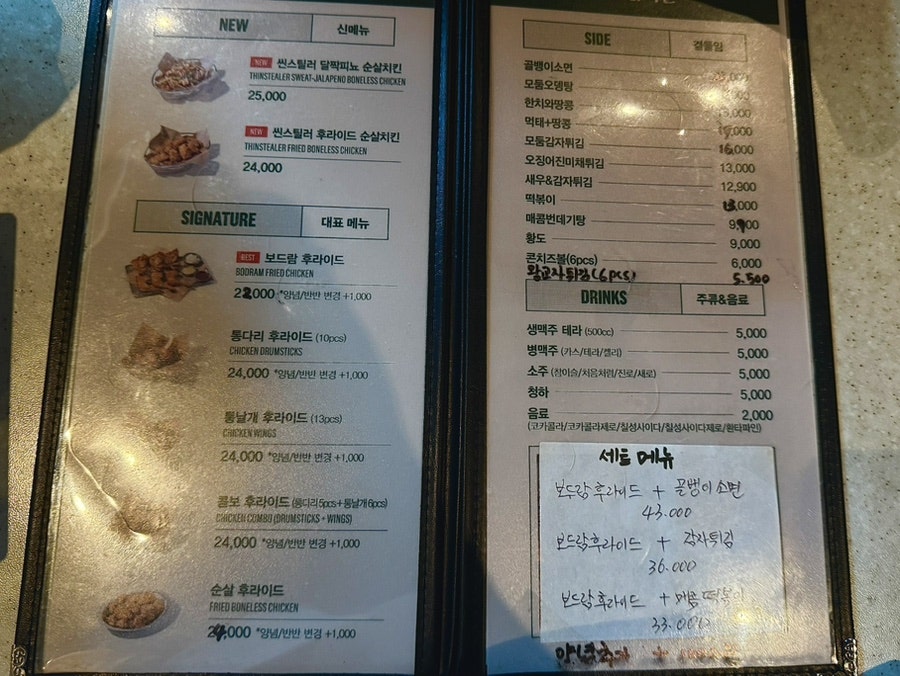 NEW 신메뉴
NEW 씬스틸러 달짝피뇨 순살치킨
THINSTEALER SWEAT-JALAPENO BONELESS CHICKEN
25,000
NEW 씬스틸러 후라이드 순살치킨
THINSTEALER FRIED BONELESS CHICKEN
24,000
SIGNATURE 대표 메뉴
BEST 보드람 후라이드
BODRAM FRIED CHICKEN
*양념/반반 변경 +1,000
통다리 후라이드 (10pcs)
CHICKEN DRUMSTICKS
24,000 *양념/반반 변경 +1,000
통날개 후라이드 (13pcs)
CHICKEN WINGS
24,000 *양념/반반 변경 +1,000
콤보 후라이드 (통다리 5pcs + 통날개 6pcs)
CHICKEN COMBO (DRUMSTICKS + WINGS)
24,000 *양념/반반 변경 +1,000
순살 후라이드
FRIED BONELESS CHICKEN
*양념/반반 변경 +1,000
SIDE 곁들임
골뱅이소면
모둠오뎅탕
한치와땅콩
먹태+땅콩
모둠감자튀김 16,000
오징어진미채튀김 13,000
새우&감자튀김 12,900
떡볶이
매콤번데기탕
황도 9,000
콘치즈볼(6pcs) 6,000
왕교자튀김(6pcs) 5.500
DRINKS 주류&음료
생맥주 테라 (500cc) 5,000
병맥주 (카스/테라/켈리) 5,000
소주 (참이슬/처음처럼/진로/새로) 5,000
청하 5,000
음료 2,000
(코카콜라/코카콜라제로/칠성사이다/칠성사이다제로/환타파인)
세트 메뉴
보드람 후라이드 + 골뱅이 소면
43.000
보드람후라이드 + 감자튀김
36.000
보드람후라이드 + 매콤 떡볶이
33.000